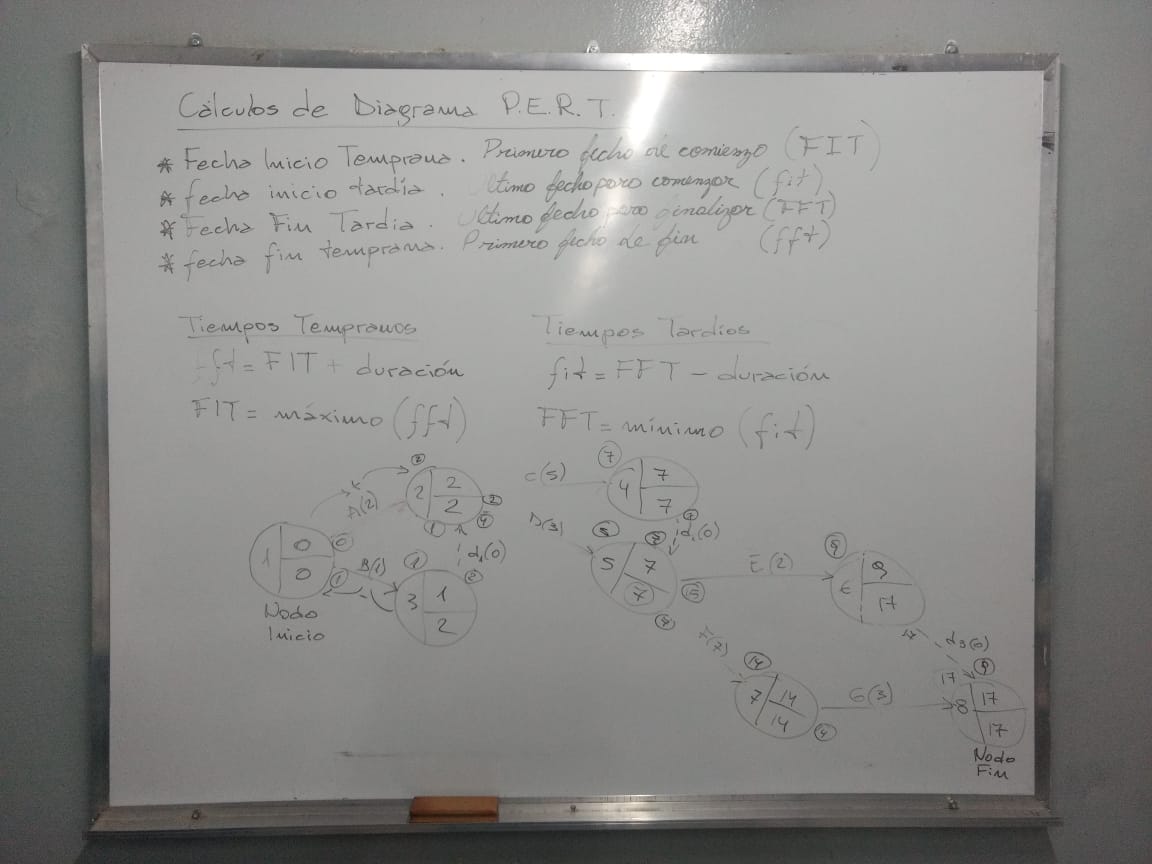 Cálculos de Diagrama P.E.R.T.
* Fecha Inicio Temprana. Primera fecha de comienzo (FIT)
* fecha inicio tardía. Ultimo fecha para comenzar (fit)
* Fecha Fin Tardia. Ultimo fecha para finalizar (FFT)
* fecha fin temprana. Primera fecha de fin (fft)
Tiempos Tempranos
fft = FIT + duración
FIT = máximo (fft)
Tiempos Tardíos
fit = FFT - duración
FFT = mínimo (fit)
1 0 0
0
Nodo
Inicio
A(2)
2
2 2 2
2
4
1
B(1)
1
1
3 1 2
2
d1(0)
C(5)
7
4 7 7
d1(0)
D(3)
5 7 7
15
E(2)
9
9 17
17
d3(0)
9
F(7)
14
7 14 14
G(3)
17
8 17 17
Nodo
Fin